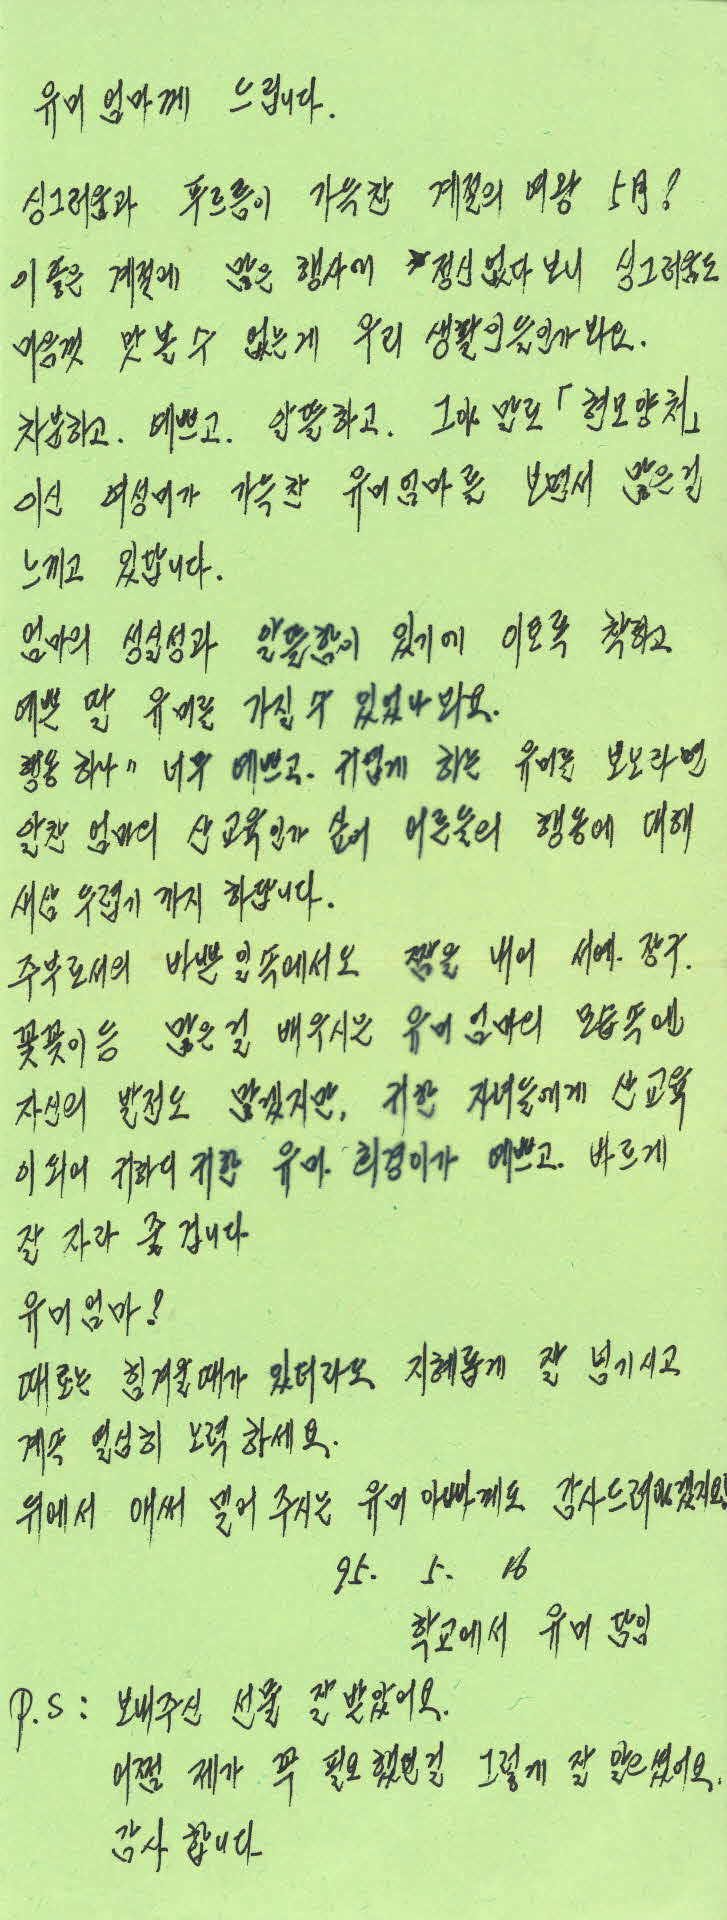 유미 엄마께 드립니다.
싱그러움과 푸르름이 가득찬 계절의 여왕 5月!
이 좋은 계절에 많은 행사에 정신없다 보니 싱그러움도
마음껏 맛볼 수 없는게 우리 생활인들인가봐요.
차분하고. 예쁘고. 알뜰하고. 그야말로 「현모양처」
이신 여성미가 가득찬 유미엄마를 보면서 많은걸
느끼고 있답니다.
엄마의 성실성과 알뜰함이 있기에 이토록 착하고
예쁜 딸 유미를 가질 수 있었나 봐요.
행동 하나〃 너무 예쁘고. 귀엽게 하는 유미를 보노라면
알찬 엄마의 산 교육인가 싶어 어른들의 행동에 대해
새삼 두렵기 까지 하답니다.
주부로서의 바쁜 일속에서도 짬을 내어 서예. 장구.
꽃꽂이 등 많은걸 배우시는 유미 엄마의 모습속엔
자신의 발전도 많겠지만, 귀한 자녀들에게 산교육
이 되어 귀하디 귀한 유미. 희경이가 예쁘고. 바르게
잘 자라 줄 겁니다
유미엄마!
때로는 힘겨울때가 있더라도 지혜롭게 잘 넘기시고
계속 열심히 노력 하세요.
뒤에서 애써 밀어 주시는 유미 아빠께도 감사드려야겠지요!
95. 5. 16
학교에서 유미 담임
P.S : 보내주신 선물 잘 받았어요.
어쩜 제가 꼭 필요했던걸 그렇게 잘 맞으셨어요.
감사 합니다